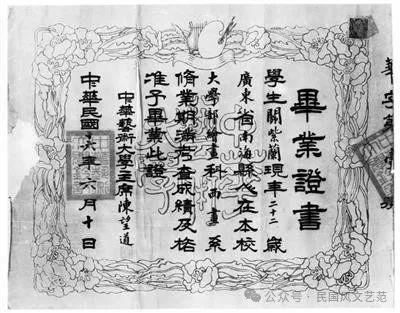 畢業證書
學生關紫蘭現年二十二歲
廣東省南海縣人在本校
大學部繪畫科西畫系
修業期滿考查成績及格
准予畢業此證
中華藝術大學主席陳望道
中華民國十六年六月十日
公众号·民国风文艺范